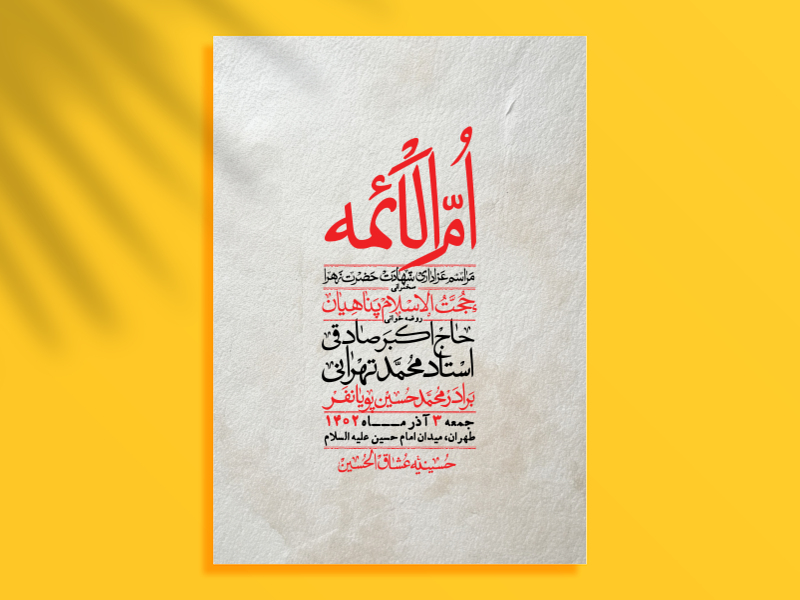 اُمّ الائمه
مراسم عزاداری شهادت حضرت زهرا
سخنرانی
حُجَّتُ الإسلام پناهیان
روضه خوانی
حاج اکبر صادقی
استاد محمّد تهرانی
برادر محمّد حسین پویانفر
جمعه ۳ آذر مـــاه ۱۴۰۲
طهران، میدان امام حسین علیه السلام
حُسینیّه عُشّاق الحُسین